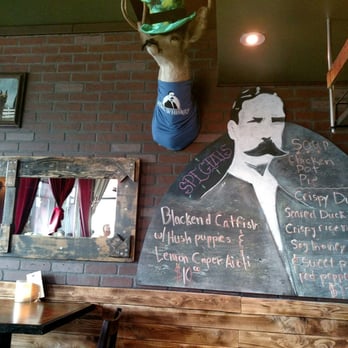 SPECIALS
Blackend Catfish
w/ Hush puppies &
Lemon Caper Aioli
16
Soup
Chicken
Pot
Pie
Crispy Du
Seared Duck
Crispy rice
Soy honey
& sweet
red peppe